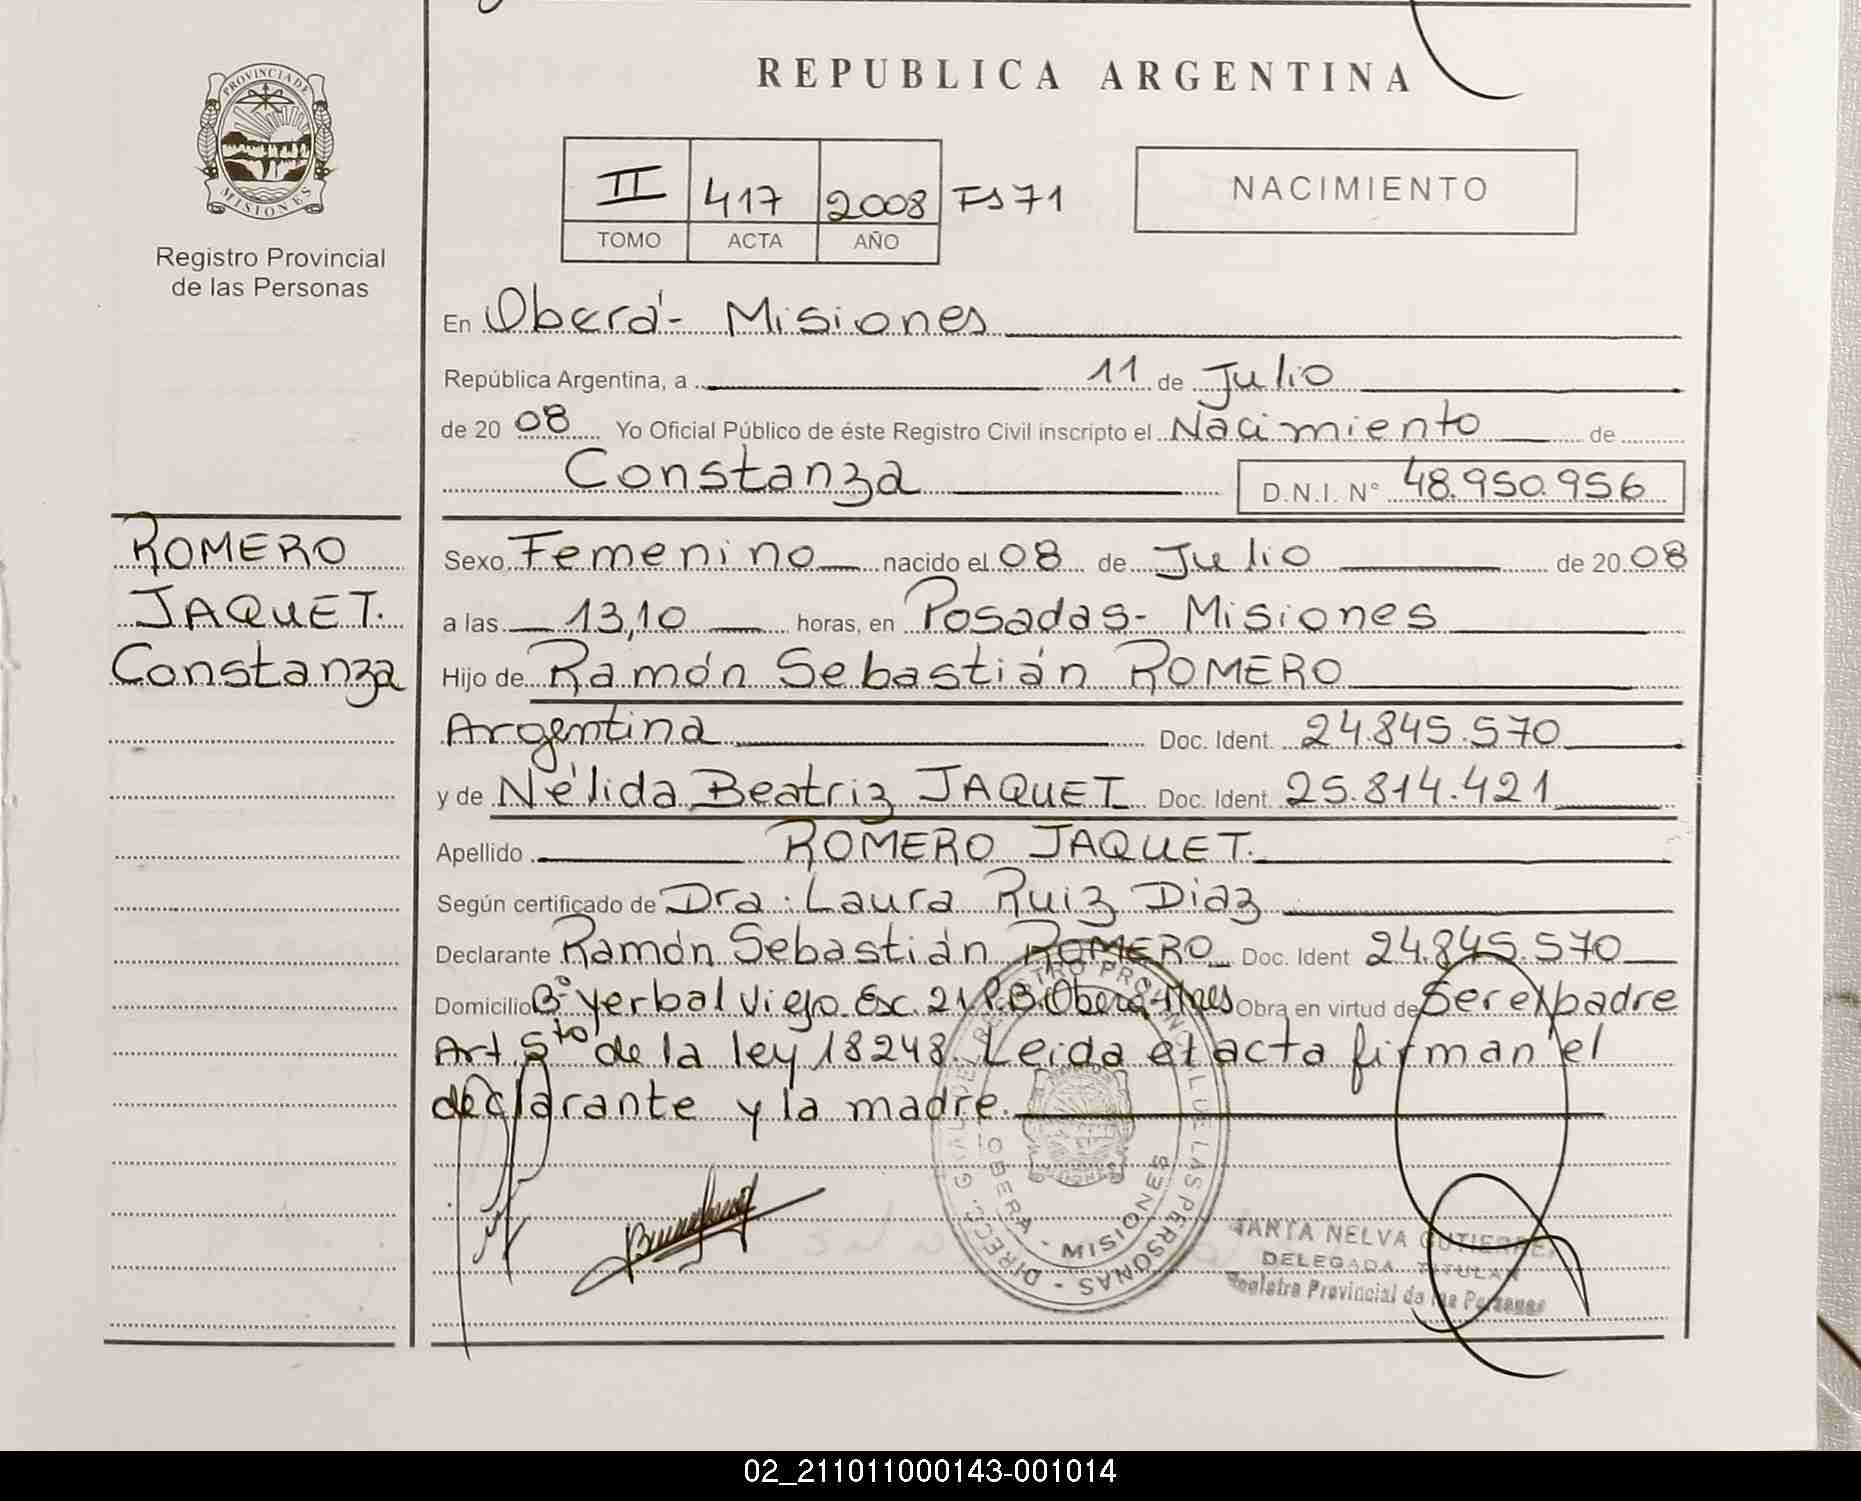 REPUBLICA ARGENTINA
PROVINCIA DE
MISIONES
Registro Provincial
de las Personas
II 417 2008 Fs 71
TOMO ACTA AÑO
NACIMIENTO
En Oberá - Misiones
República Argentina, a 11 de Julio
de 20 08 Yo Oficial Público de éste Registro Civil inscripto el Nacimiento de
Constanza D.N.I. N° 48.950.956
ROMERO
JAQUET.
Constanza
Sexo Femenino nacido el 08 de Julio de 20 08
a las 13,10 horas, en Posadas - Misiones
Hijo de Ramón Sebastián ROMERO
Argentina Doc. Ident. 24.845.570
y de Nélida Beatriz JAQUET Doc. Ident. 25.814.421
Apellido ROMERO JAQUET.
Según certificado de Dra. Laura Ruiz Diaz
Declarante Ramón Sebastián ROMERO Doc. Ident 24.845.570
Domicilio B° Yerbal Viejo Esc. 21 P.B. Oberá - Mnes Obra en virtud de Ser el padre
Art. 5to de la ley 18248. Leida el acta firman el
declarante y la madre.
DIRECC. GRAL. DEL REGISTRO PROVINCIAL DE LAS PERSONAS
OBERA - MISIONES
MARTA NELVA GUTIERREZ
DELEGADA TITULAR
Registro Provincial de las Personas
02_211011000143-001014